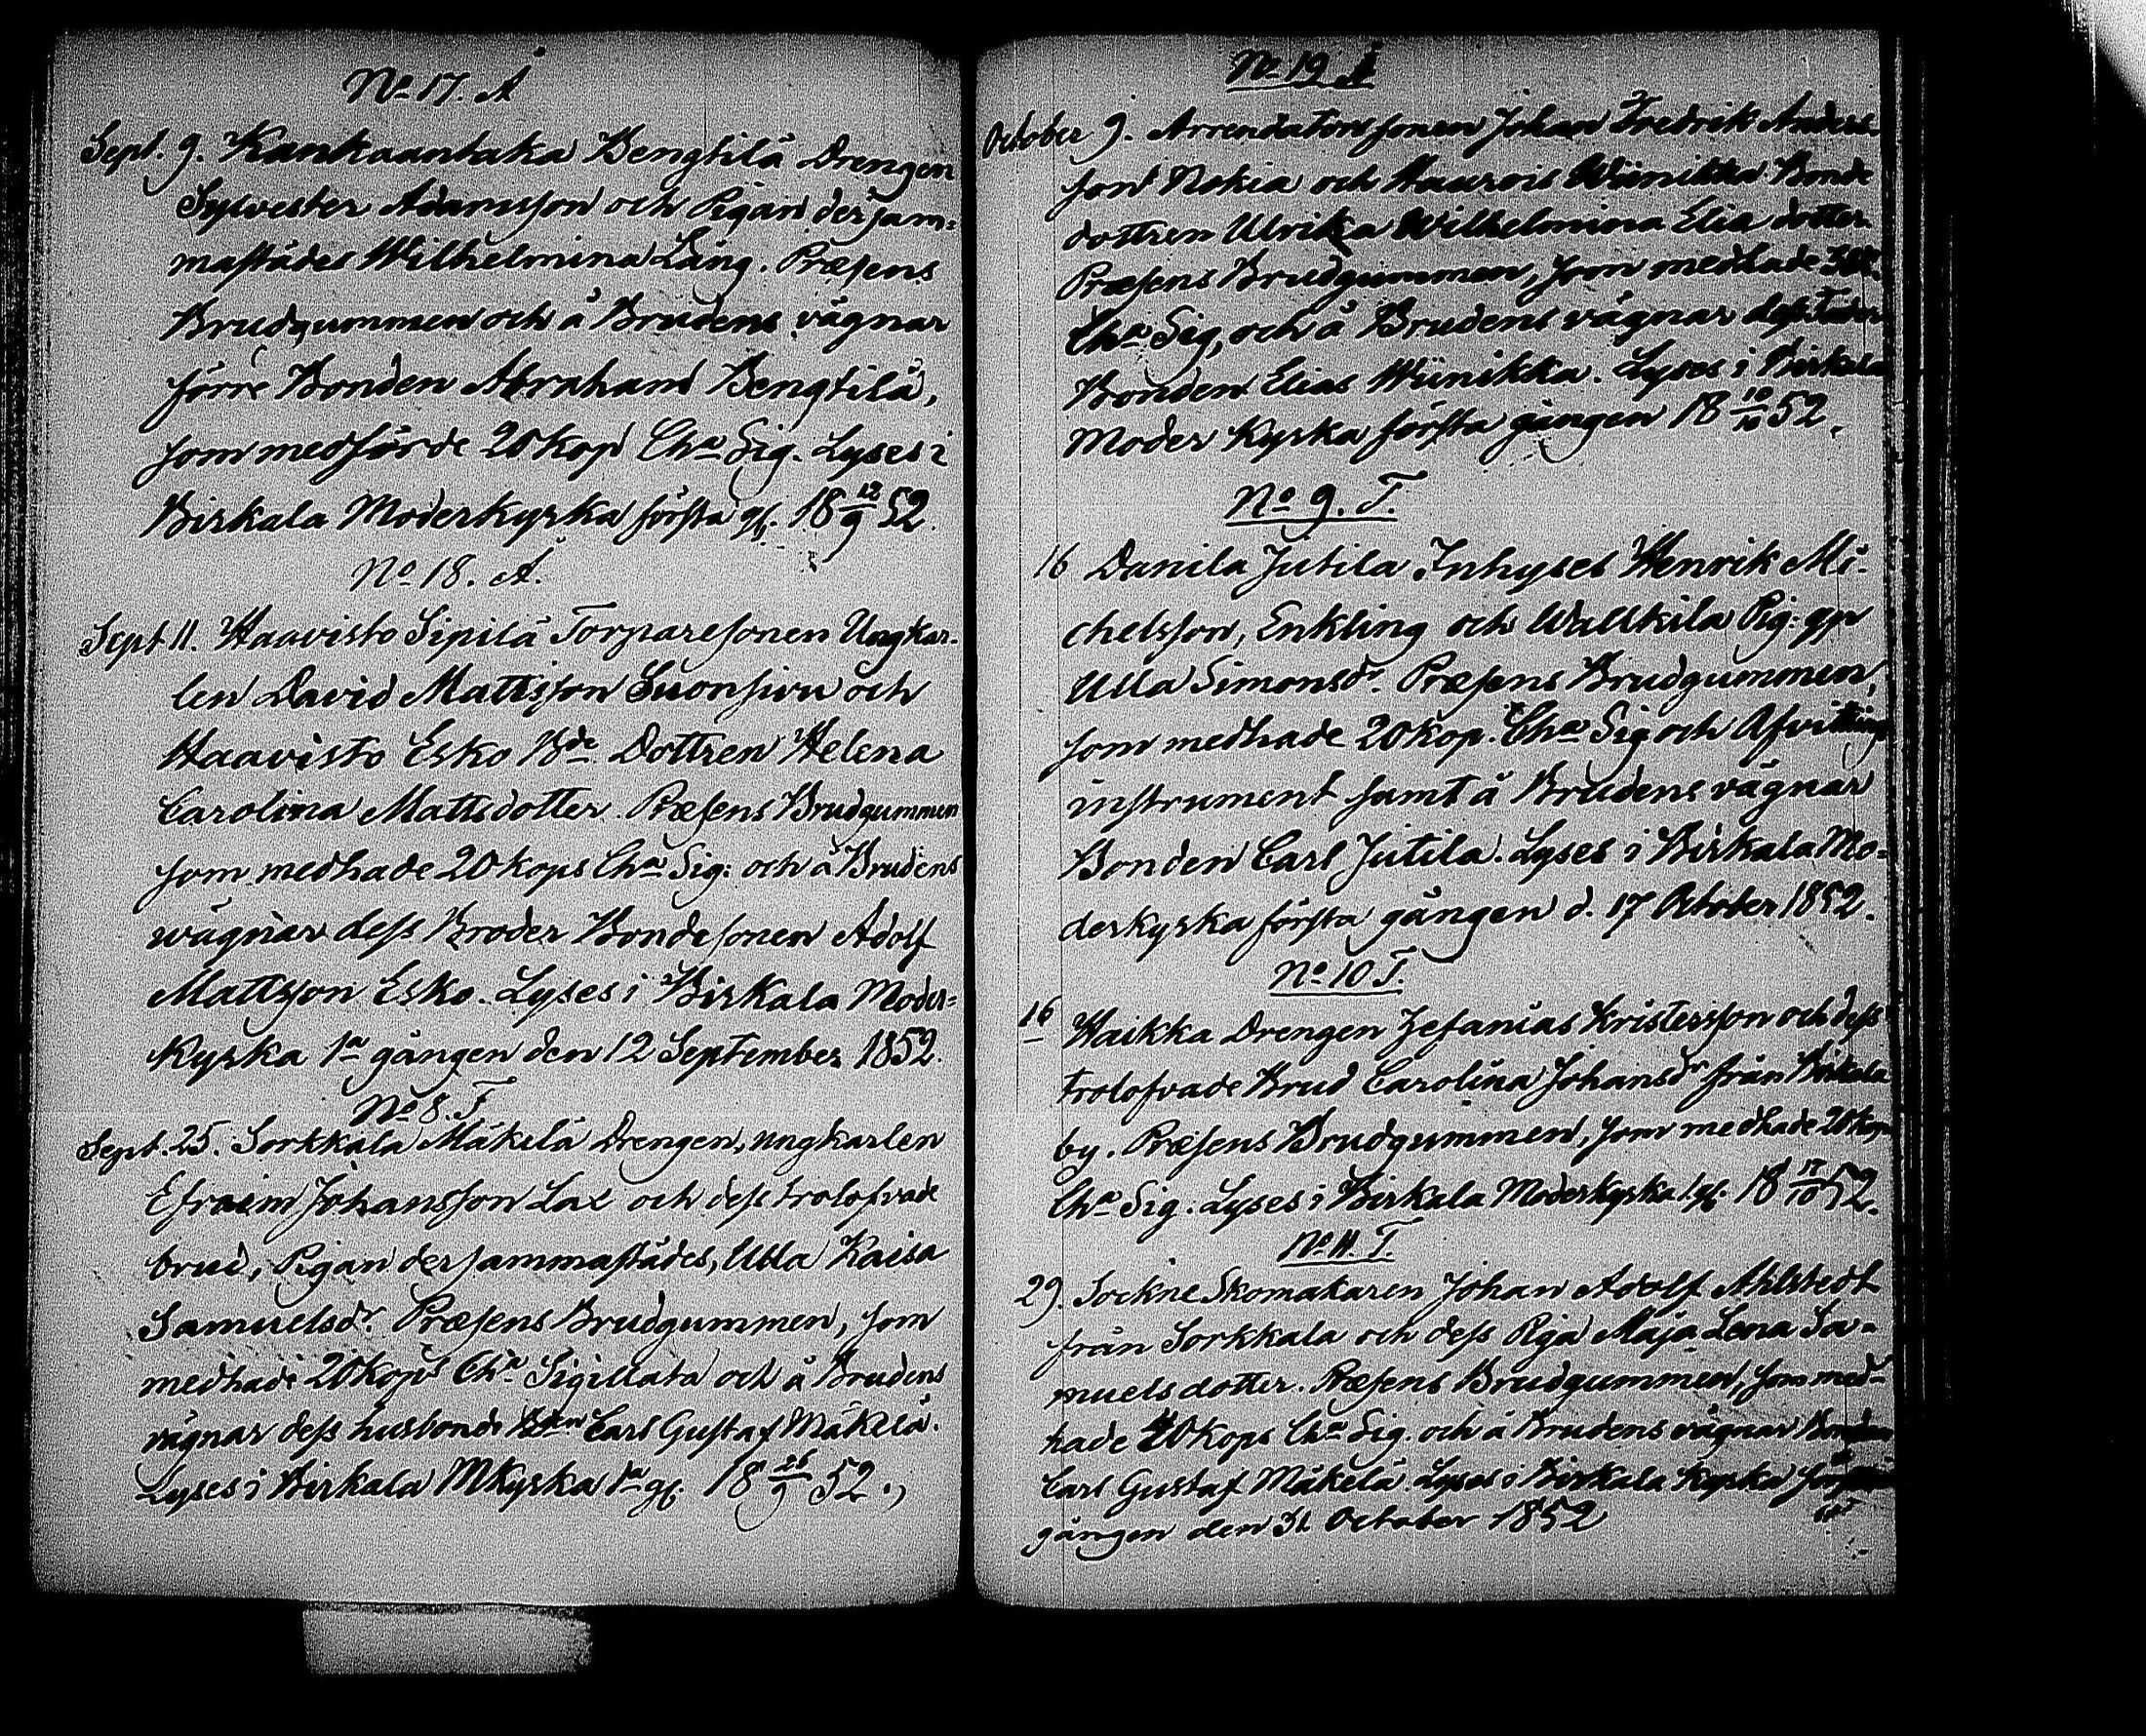 No 17. Å
Sept. 9. Kankaantaka Bengtilä Drengen
Sylvester Adamsson och Pigan dersam-
mastädes Wilhelmina Lång. Præsens
Brudgummen och å Brudens vägnar
förre Bonden Abraham Bengtilä,
som medförde 20 kop Cha Sig. Lyses i
Birkala Moderkyrka första gg. 18 12/9 52.
No 18. Å.
Sept 11. Haavisto Sipilä Torparesonen Ungkar-
len David Mattsson Suonsivu och
Haavisto Esko Bde Dottren Helena
Carolina Mattsdotter. Præsens Brudgummen
som medhade 20 kops Cha Sig: och å Brudens
wägnar dess Broder Bondesonen Adolf
Mattsson Esko. Lyses i Birkala Moder-
Kyrka 1a gången den 12 September 1852.
No 8. T.
Sept. 25. Sorkkala Mäkelä Drengen, ungkarlen
Efraim Johansson Lax och dess trolofvade
brud, Pigan dersammastädes, Ulla Kaisa
Samuelsdr. Præsens Brudgummen, som
medhade 20 kops Cha Sigillata och å Brudens
vägnar dess husbonde Bden Carl Gustaf Mäkelä.
Lyses i Birkala MKyrka 1a gg. 18 26/9 52.,
No 19 Å
October 9. Arrendatorssonen Johan Fredrik Anders-
son Nokia och Haavois Wiinikka Bonde
dottren Ulrika Wilhelmina Elia dotter.
Præsens Brudgummen, som medhade
Cha Sig, och å Brudens vägnar dess
Bonden Elias Wiinikka. Lyses i Birkala
Moder Kyrka första gången 18 10/10 52.
No 9. T.
16 Danila Jutila Inhyses Henrik Mi-
chelsson, Enkling och Wallkila Pig: gn
Ulla Simonsdr. Præsens Brudgummen,
som medhade 20 kop. Cha Sig och Afvittrings
instrument samt å Brudens vägnar
Bonden Carl Jutila. Lyses i Birkala Mo-
derkyrka första gången d. 17 October 1852.
No 10 T.
16 Haikka Drengen Zefanias Kristersson och dess
trolofvade Brud Carolina Johansdr från Birkala
by. Præsens Brudgummen, som medhade 20 kops
Cha Sig: Lyses i Birkala Moderkyrka 1 gg. 18 17/10 52.
No 11. T.
29. Sockne Skomakaren Johan Adolf Ahlstedt
från Sorkkala och dess Piga Maja Lena Sa-
muels dotter. Præsens Brudgummen, som med-
hade 20 kops Cha Sig. och å Brudens vägnar Bonden
Carl Gustaf Mäkelä. Lyses i Birkala Kyrka första
gången den 31 October 1852